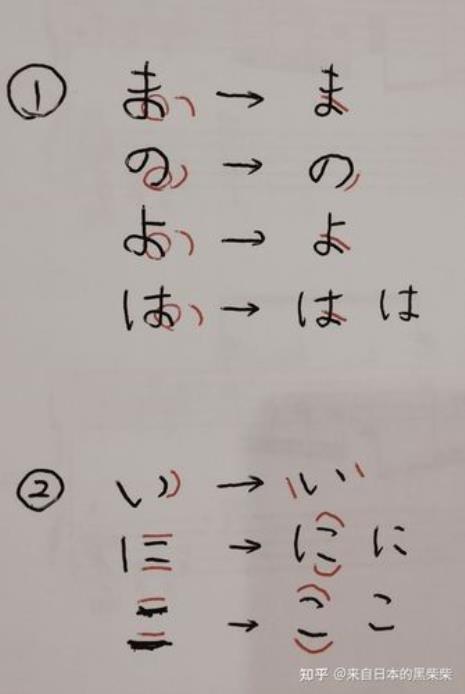 ① ま → ま
の → の
よ → よ
は → は は
② い → い
に → に に
こ → こ こ
知乎 @来自日本的黑柴柴